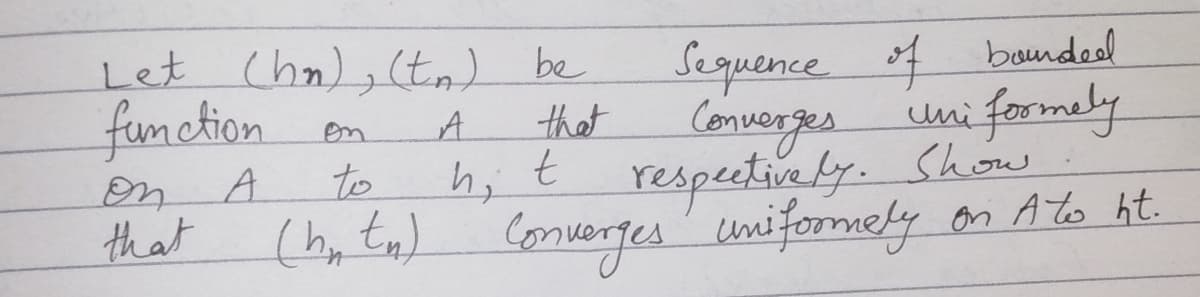 Let (hn), (tn) be Sequence of bounded
function on A that Converges uniformely
on A to h, t respectively. Show
that (hn tn) Converges uniformely on A to ht.